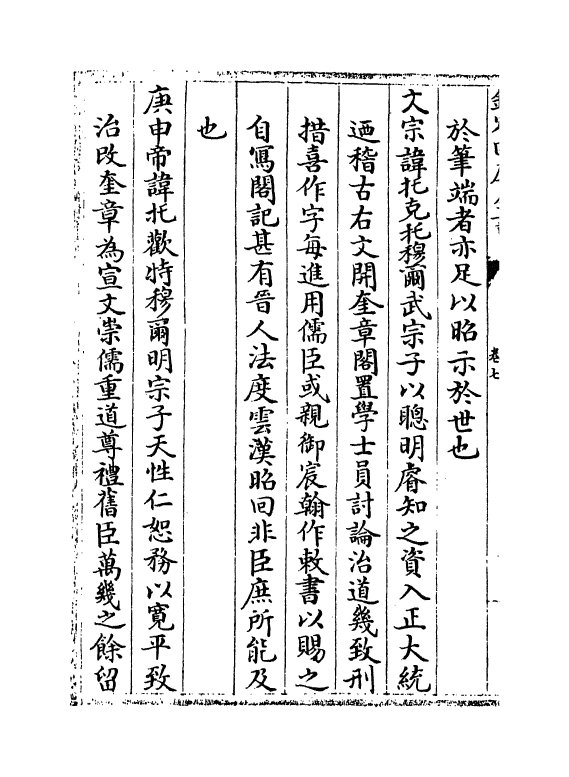 卷七
於筆端者亦足以昭示於世也
文宗諱托克托穆爾武宗子以聰明睿知之資入正大統
迺稽古右文開奎章閣置學士員討論治道幾致刑
措喜作字每進用儒臣或親御宸翰作敕書以賜之
自寫閣記甚有晉人法度雲漢昭回非臣庶所能及
也
庚申帝諱托歡特穆爾明宗子天性仁恕務以寬平致
治改奎章為宣文崇儒重道尊禮舊臣萬幾之餘留